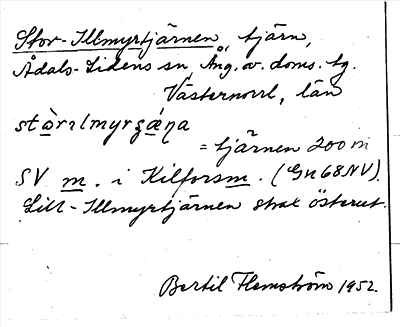 Stor-Illmyrtjärnen, tjärn,
Ådals-Lidens sn, Ång. v. doms. tg.
Västernorrl, län
stòrɪlmyrʂǽŋa
= tjärnen 200 m
SV m. i Kilforsm. (Gn68NV).
Lill-Illmyrtjärnen strax österut.
Bertil Flemström 1952.